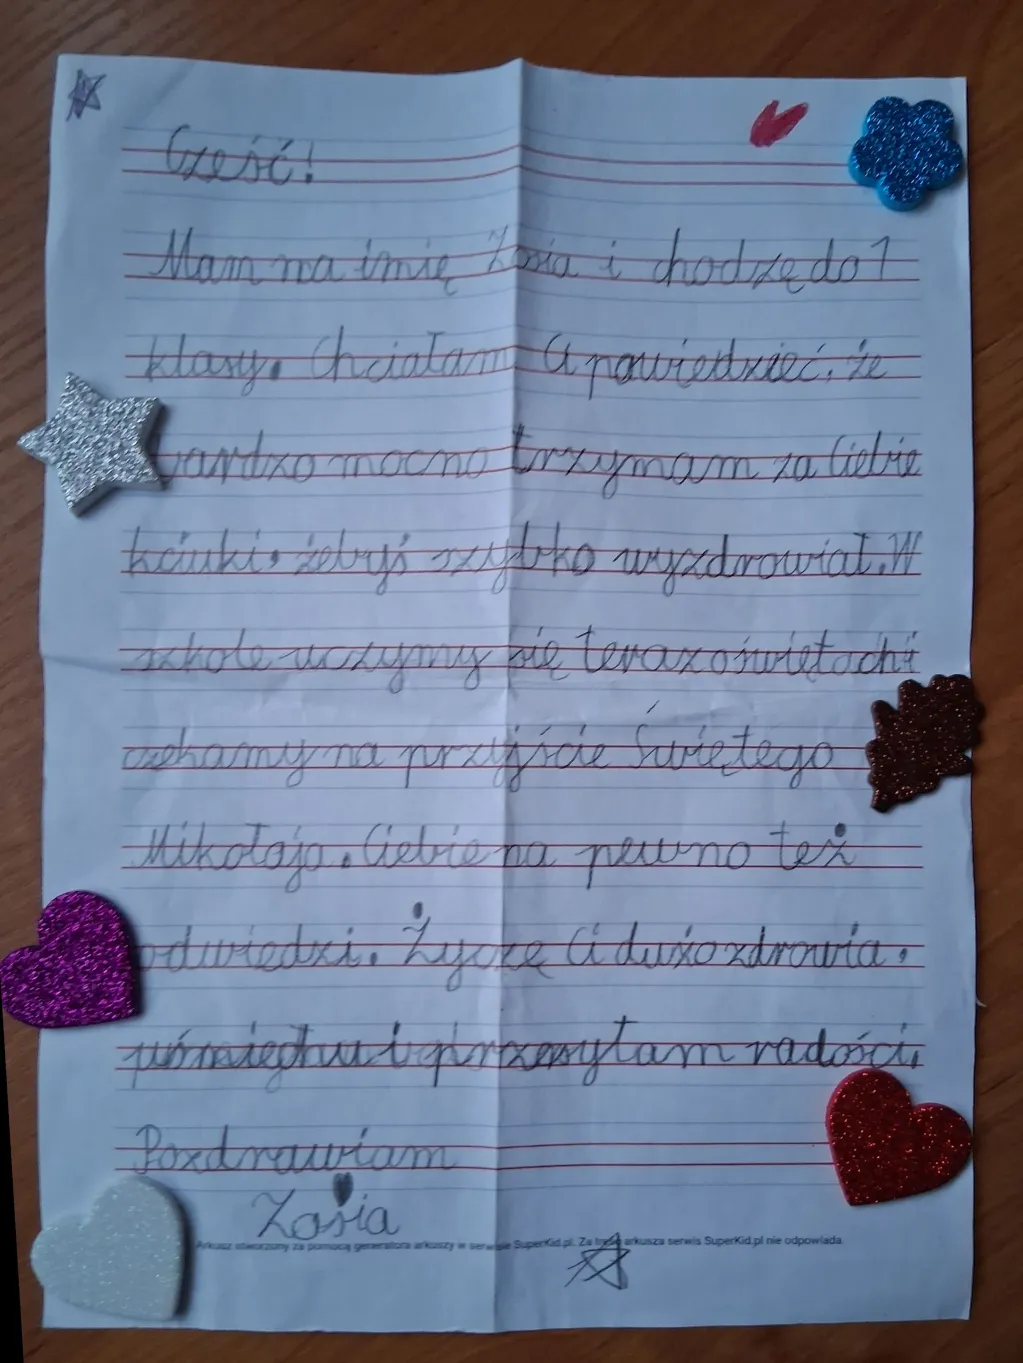 Cześć!
Mam na imię Zosia i chodzę do 1
klasy. Chciałam Ci powiedzieć, że
bardzo mocno trzymam za Ciebie
kciuki, żebyś szybko wyzdrowiał. W
szkole uczymy się teraz o świętach i
czekamy na przyjście Świętego
Mikołaja. Ciebie na pewno też
odwiedzi. Życzę Ci dużo zdrowia,
uśmiechu i przesyłam radości,
Pozdrawiam
Zosia
Arkusz stworzony za pomocą generatora arkuszy w serwisie SuperKid.pl. Za treść arkusza serwis SuperKid.pl nie odpowiada.